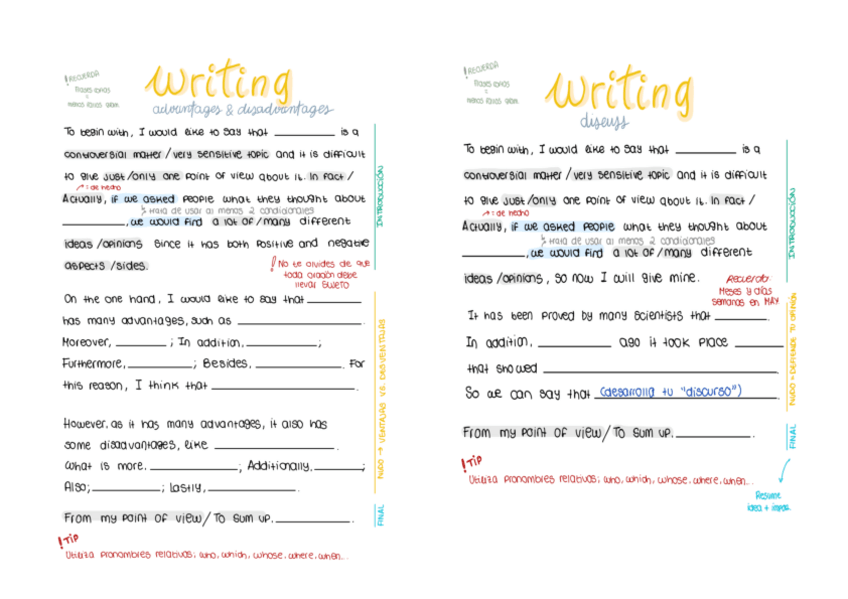 !RECUERDA
Frases largas
=
menos ideas gram.
writing
advantages & disadvantages
To begin with, I would like to say that ________ is a
controversial matter / very sensitive topic and it is difficult
to give just/only one point of view about it. In fact /
↗: de hecho
Actually, if we asked people what they thought about
↳ trata de usar al menos 2 condicionales
________, we would find a lot of/many different
ideas /opinions since it has both positive and negative
aspects /sides.
! No te olvides de que
toda oración debe
llevar sujeto
INTRODUCCIÓN
On the one hand, I would like to say that ________
has many advantages, such as ________.
Moreover, ________; In addition, ________;
Furthermore, ________; Besides, ________. For
this reason, I think that ________.
However, as it has many advantages, it also has
some disadvantages, like ________.
What is more, ________; Additionally, ________;
Also; ________; lastly, ________.
NUDO → VENTAJAS VS. DESVENTAJAS
From my point of view/ To sum up, ________.
FINAL
!TIP
Utiliza pronombres relativos; who, which, whose, where, when...
!RECUERDA
Frases largas
=
menos ideas gram.
writing
discuss
To begin with, I would like to say that ________ is a
controversial matter / very sensitive topic and it is difficult
to give just/only one point of view about it. In fact /
↗: de hecho
Actually, if we asked people what they thought about
↳ trata de usar al menos 2 condicionales
________, we would find a lot of/many different
ideas /opinions, so now I will give mine.
INTRODUCCIÓN
Recuerda:
Meses y días
semanas en MAY
It has been proved by many scientists that ________.
In addition, ________ ago it took place ________
that showed ________
So we can say that (desarrolla tu "discurso")
NUDO → DEFIENDE TU OPINIÓN
From my point of view/ To sum up, ________.
FINAL
!TIP
Utiliza pronombres relativos; who, which, whose, where, when...
Resume
idea + impor.